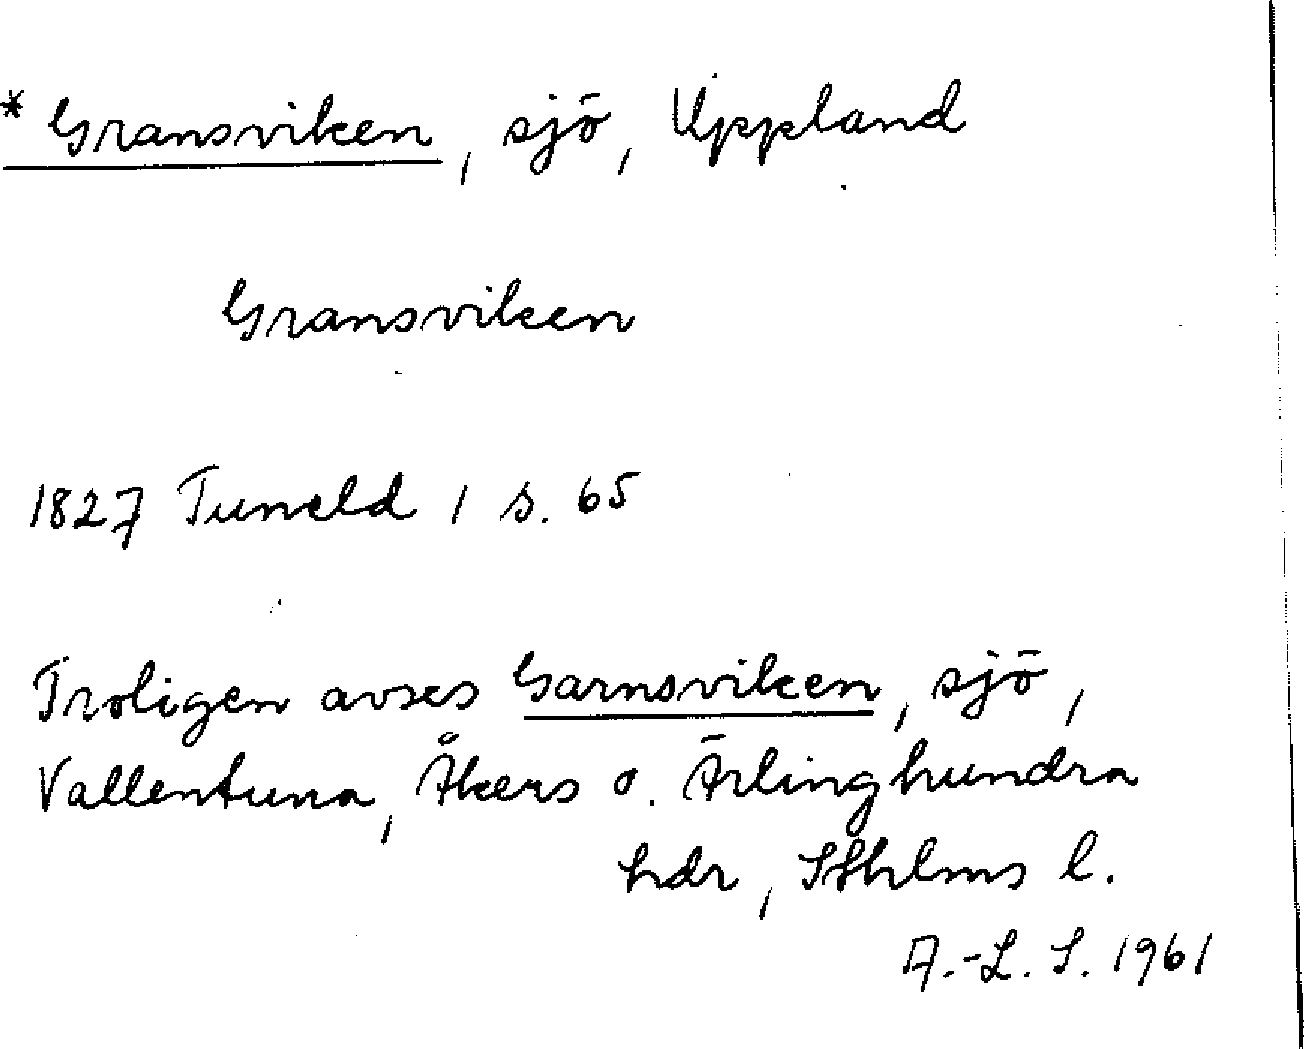 * Gransviken, sjö, Uppland
Gransviken
1827 Tuneld 1 s. 65
Troligen avses Garnsviken, sjö,
Vallentuna, Åkers o. Ärlinghundra
hdr, Sthlms l.
A.-L. S. 1961